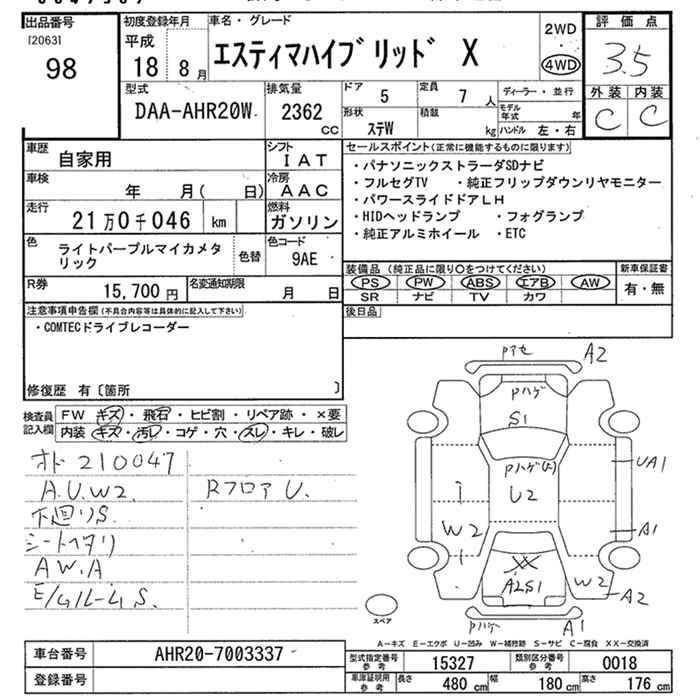 出品番号
[2063]
98
初度登録年月
平成
18 8月
車名・グレード
エスティマハイブリッド X
2WD
・
4WD
評価点
3.5
外装 内装
C C
型式
DAA-AHR20W
排気量
2362 cc
ドア 5
定員 7 人
形状 ステW
積載 kg
ディーラー・並行
モデル年式 年
ハンドル 左・右
車歴 自家用
シフト IAT
車検 年 月( 日)
冷房 AAC
走行 21万0千046 km
燃料 ガソリン
色 ライトパープルマイカメタリック
色替
色コード 9AE
R券 15,700 円
名変通知期限 月 日
セールスポイント(正常に機能するものに限ります)
・パナソニックストラーダSDナビ
・フルセグTV ・純正フリップダウンリヤモニター
・パワースライドドアLH
・HIDヘッドランプ ・フォグランプ
・純正アルミホイール ・ETC
装備品(純正品に限り○をつけてください)
PS PW ABS エアB AW
SR ナビ TV カワ
新車保証書
有・無
後日品
注意事項申告欄(不具合内容等は具体的に記入して下さい)
・COMTECドライブレコーダー
修復歴 有〔箇所 〕
検査員記入欄
FW キズ・飛石・ヒビ割・リペア跡・×要
内装 キズ・汚レ・コゲ・穴・スレ・キレ・破レ
オド 210047
A.U.W2.
下廻りS.
シートヘタリ
A W.A
E/Gルーム S.
Rフロア U.
Pアセ A2
Pハゲ
S1
Pハゲ(ル)
U2
UA1
W2
A1
XX
A2S1
W2
A2
Pハゲ A1
スペア
A−キズ E−エクボ U−凹み W−補修跡 S−サビ C−腐食 XX−交換済
車台番号 AHR20-7003337
登録番号
型式指定番号 参考 15327
類別区分番号 参考 0018
車庫証明用 参考 長さ 480 cm 幅 180 cm 高さ 176 cm